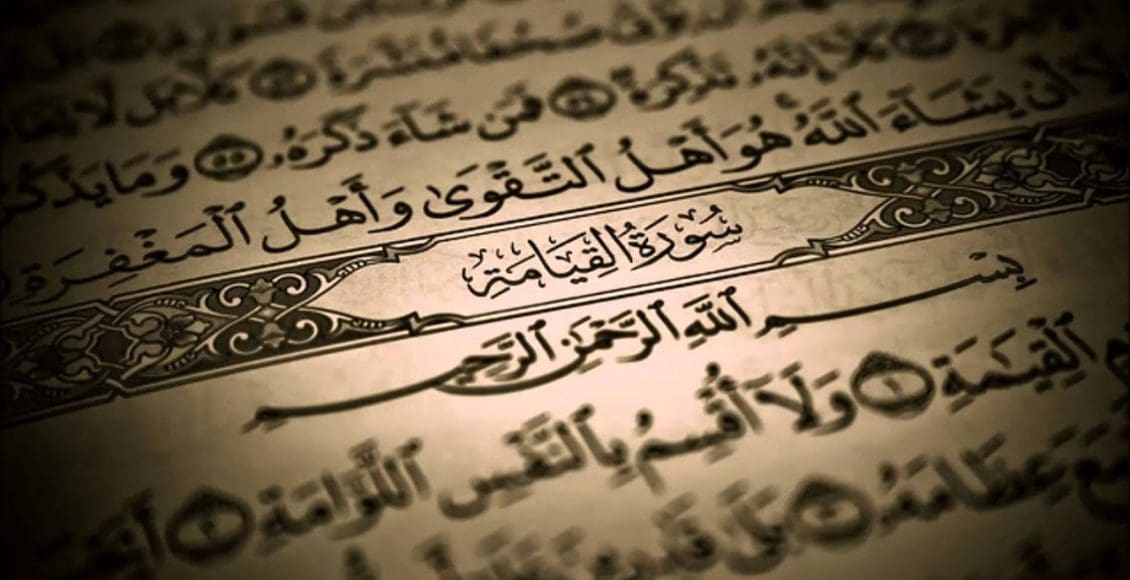 صُحُفًا مُّنَشَّرَةً ۝ كَلَّا بَل لَّا
كَلَّا إِنَّهُۥ تَذْكِرَةٌ ۝ فَمَن شَآءَ ذَكَرَهُۥ ٥٥ وَمَا يَذْكُرُ
أَن يَشَآءَ ٱللَّهُ هُوَ أَهْلُ ٱلتَّقْوَىٰ وَأَهْلُ ٱلْمَغْفِرَةِ
سُورَةُ القِيَامَةِ
بِسْمِ ٱللَّهِ ٱلرَّحْمَٰنِ ٱلرَّحِيمِ
ٱلْقِيَٰمَةِ ١ وَلَآ أُقْسِمُ بِٱلنَّفْسِ ٱللَّوَّامَةِ ٢
عِظَامَهُۥ ٣ بَلَىٰ